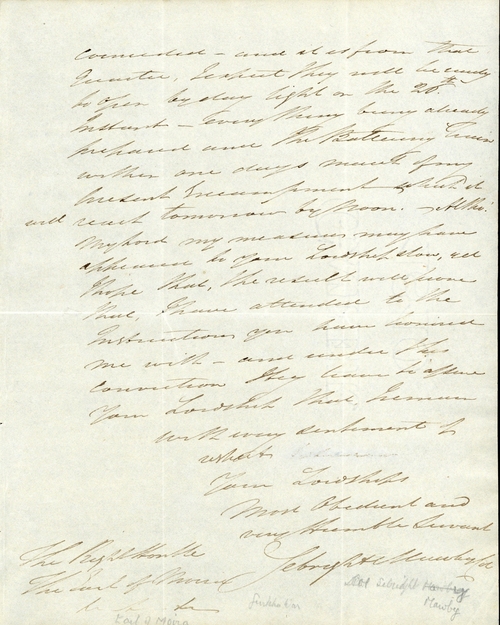 connected - and it is from that
Quarter, I expect they will be ready
to open by day light on the 28th
Instant - Every thing being already
prepared and the Battering Train
within one days march of my
present Encampment which it
will reach tomorrow by Noon. - Altho'
My Lord my measures may have
appeared to Your Lordship slow, yet
I hope that, the result will prove
that, I have attended to the
Instructions you have honored
me with - and under this
conviction I beg leave to assure
Your Lordship that I remain
with every sentiment of
respect
Your Lordships
Most Obedient and
very Humble Servant
Sebright Mawby
The Right Honble
The Earl of Moira
Col Sebright Mawby
Mawby
Earl of Moira